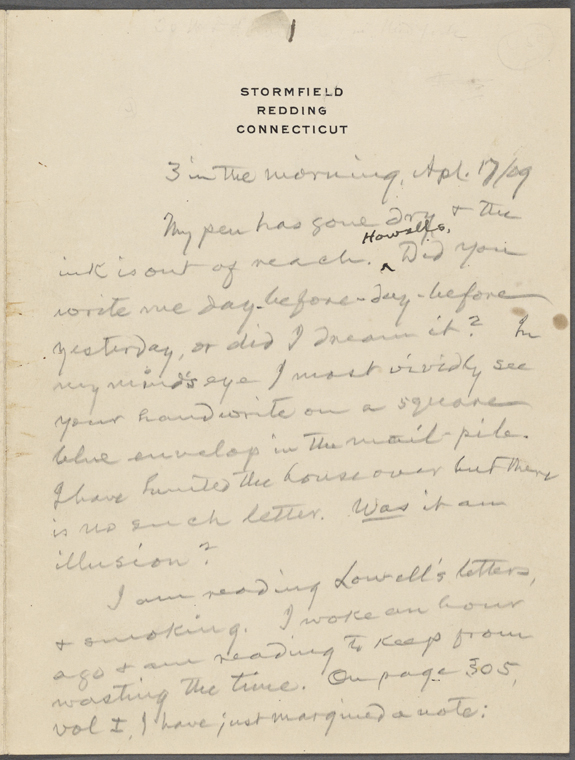 1
STORMFIELD
REDDING
CONNECTICUT
3 in the morning, Apl. 17/09
My pen has gone dry & the
ink is out of reach. Howells, Did you
write me day-before-day-before
yesterday, or did I dream it? In
my mind's eye I most vividly see
your hand write on a square
blue envelop in the mail-pile.
I have hunted the house over but there
is no such letter. Was it an
illusion?
I am reading Lowell's letters,
& smoking. I woke an hour
ago & am reading to keep from
wasting the time. On page 305,
vol I, I have just margined a note: